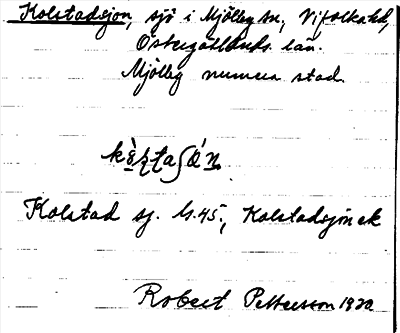 Kolstadsjön, sjö i Mjölby sn, Vifolka hd,
Östergötlands län.
Mjölby numera stad.
Kolstad sj. G.45, Kolstadsjön ek
Robert Pettersson 1920